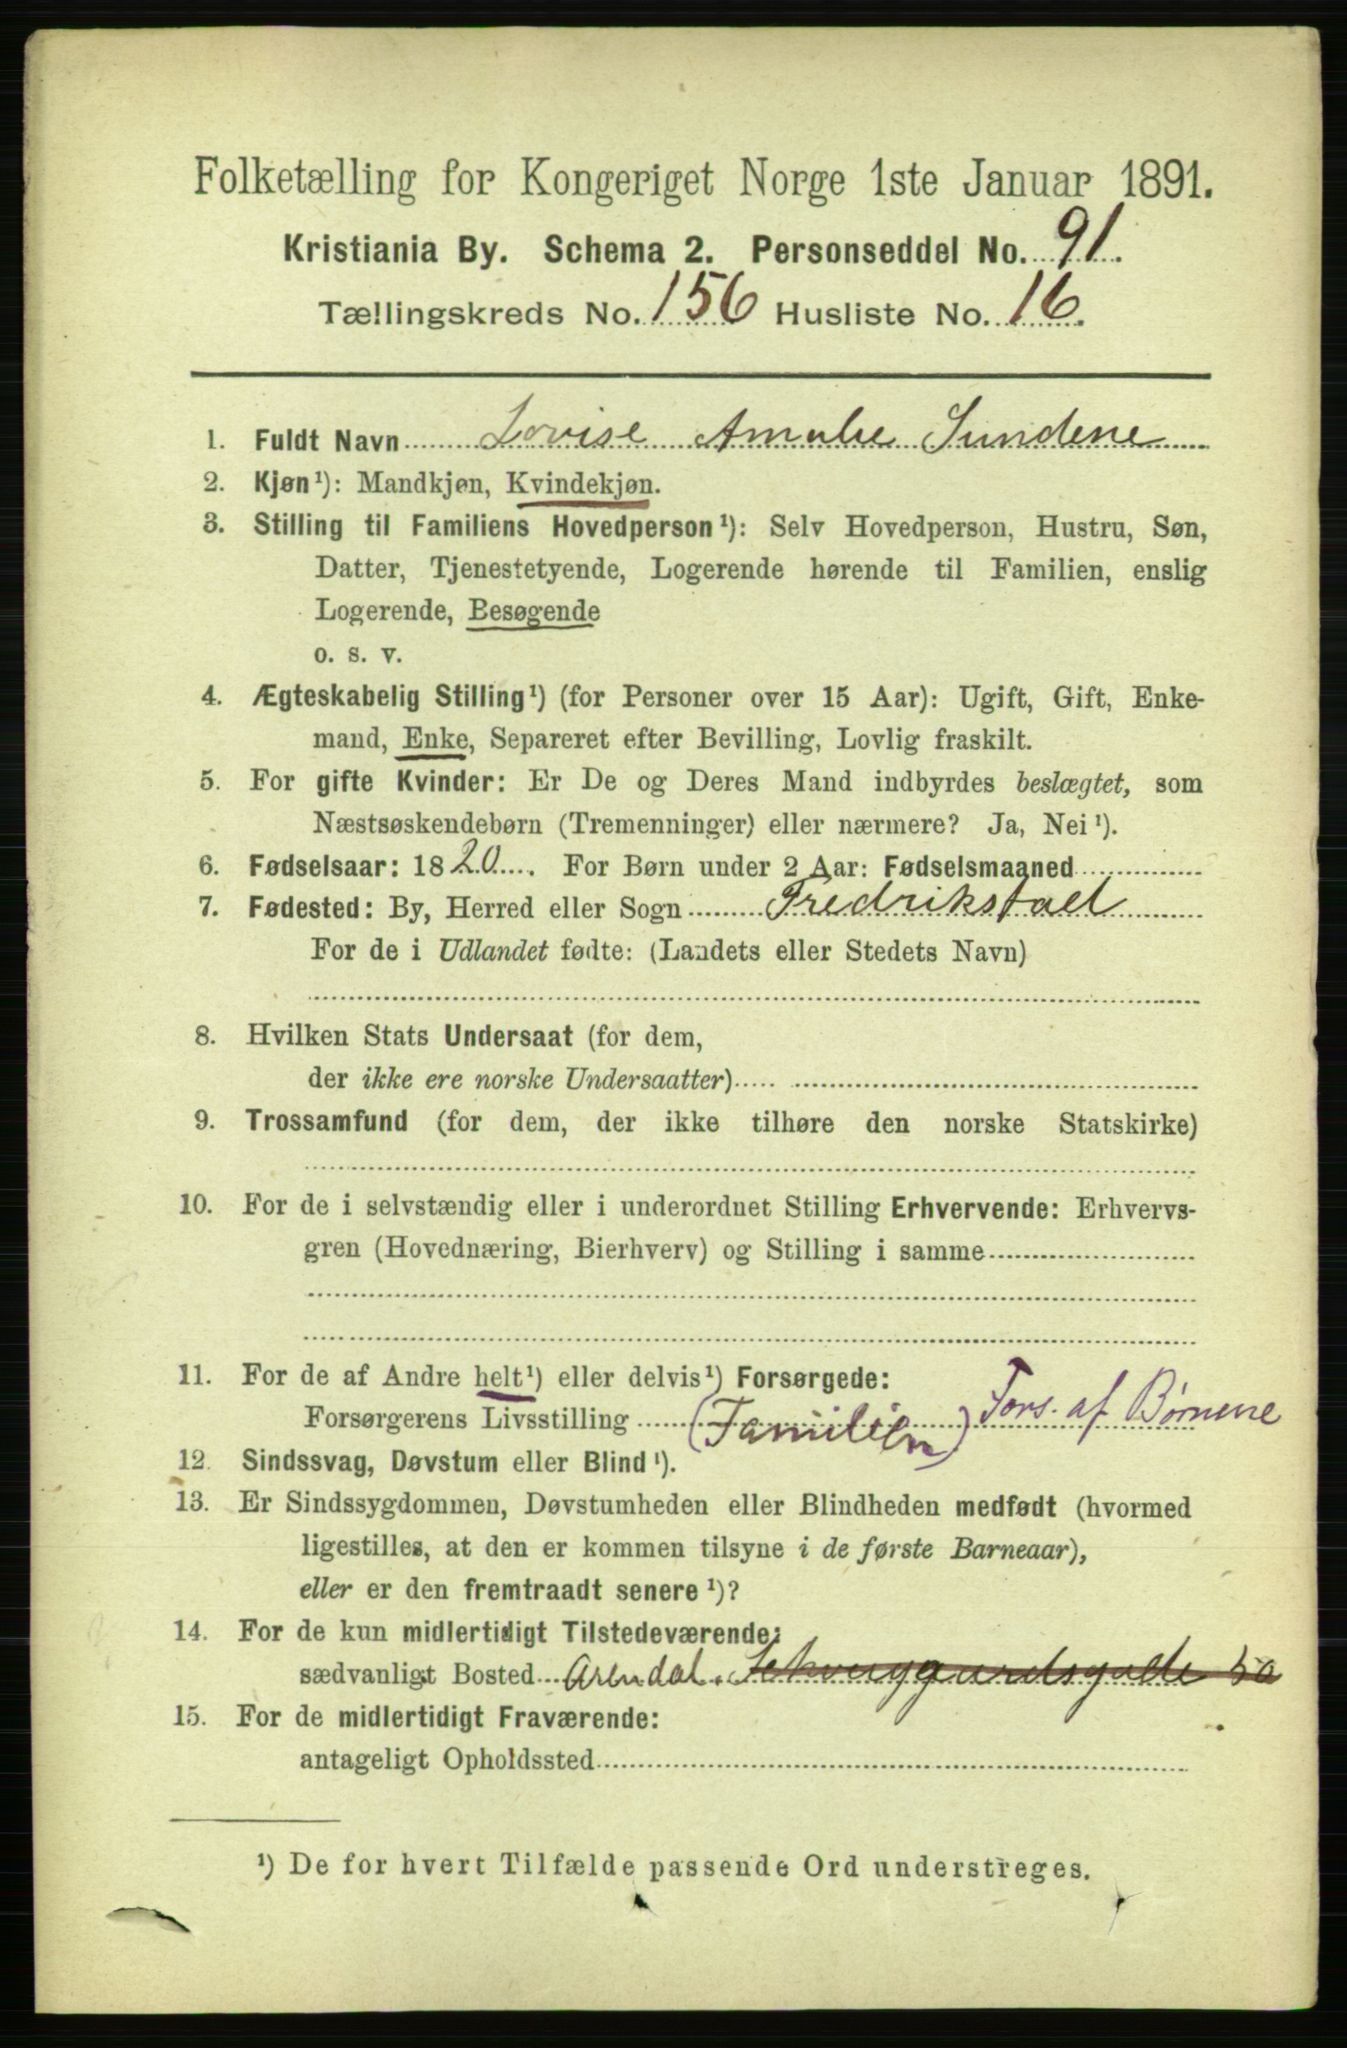 Folketælling for Kongeriget Norge 1ste Januar 1891.
Kristiania By. Schema 2. Personseddel No. 91.
Tællingskreds No. 156 Husliste No. 16.
1. Fuldt Navn Lovise Amalie Sundene
2. Kjøn¹): Mandkjøn, Kvindekjøn.
3. Stilling til Familiens Hovedperson¹): Selv Hovedperson, Hustru, Søn,
Datter, Tjenestetyende, Logerende hørende til Familien, enslig
Logerende, Besøgende
o. s. v.
4. Ægteskabelig Stilling¹) (for Personer over 15 Aar): Ugift, Gift, Enke-
mand, Enke, Separeret efter Bevilling, Lovlig fraskilt.
5. For gifte Kvinder: Er De og Deres Mand indbyrdes beslægtet, som
Næstsøskendebørn (Tremenninger) eller nærmere? Ja, Nei¹).
6. Fødselsaar: 1820. For Børn under 2 Aar: Fødselsmaaned
7. Fødested: By, Herred eller Sogn Fredrikstad
For de i Udlandet fødte: (Landets eller Stedets Navn)
8. Hvilken Stats Undersaat (for dem,
der ikke ere norske Undersaatter)
9. Trossamfund (for dem, der ikke tilhøre den norske Statskirke)
10. For de i selvstændig eller i underordnet Stilling Erhvervende: Erhvervs-
gren (Hovednæring, Bierhverv) og Stilling i samme
11. For de af Andre helt¹) eller delvis¹) Forsørgede:
Forsørgerens Livsstilling (Familien) Fors. af Børnene
12. Sindssvag, Døvstum eller Blind¹).
13. Er Sindssygdommen, Døvstumheden eller Blindheden medfødt (hvormed
ligestilles, at den er kommen tilsyne i de første Barneaar),
eller er den fremtraadt senere¹)?
14. For de kun midlertidigt Tilstedeværende:
sædvanligt Bosted Arendal.
15. For de midlertidigt Fraværende:
antageligt Opholdssted
¹) De for hvert Tilfælde passende Ord understreges.